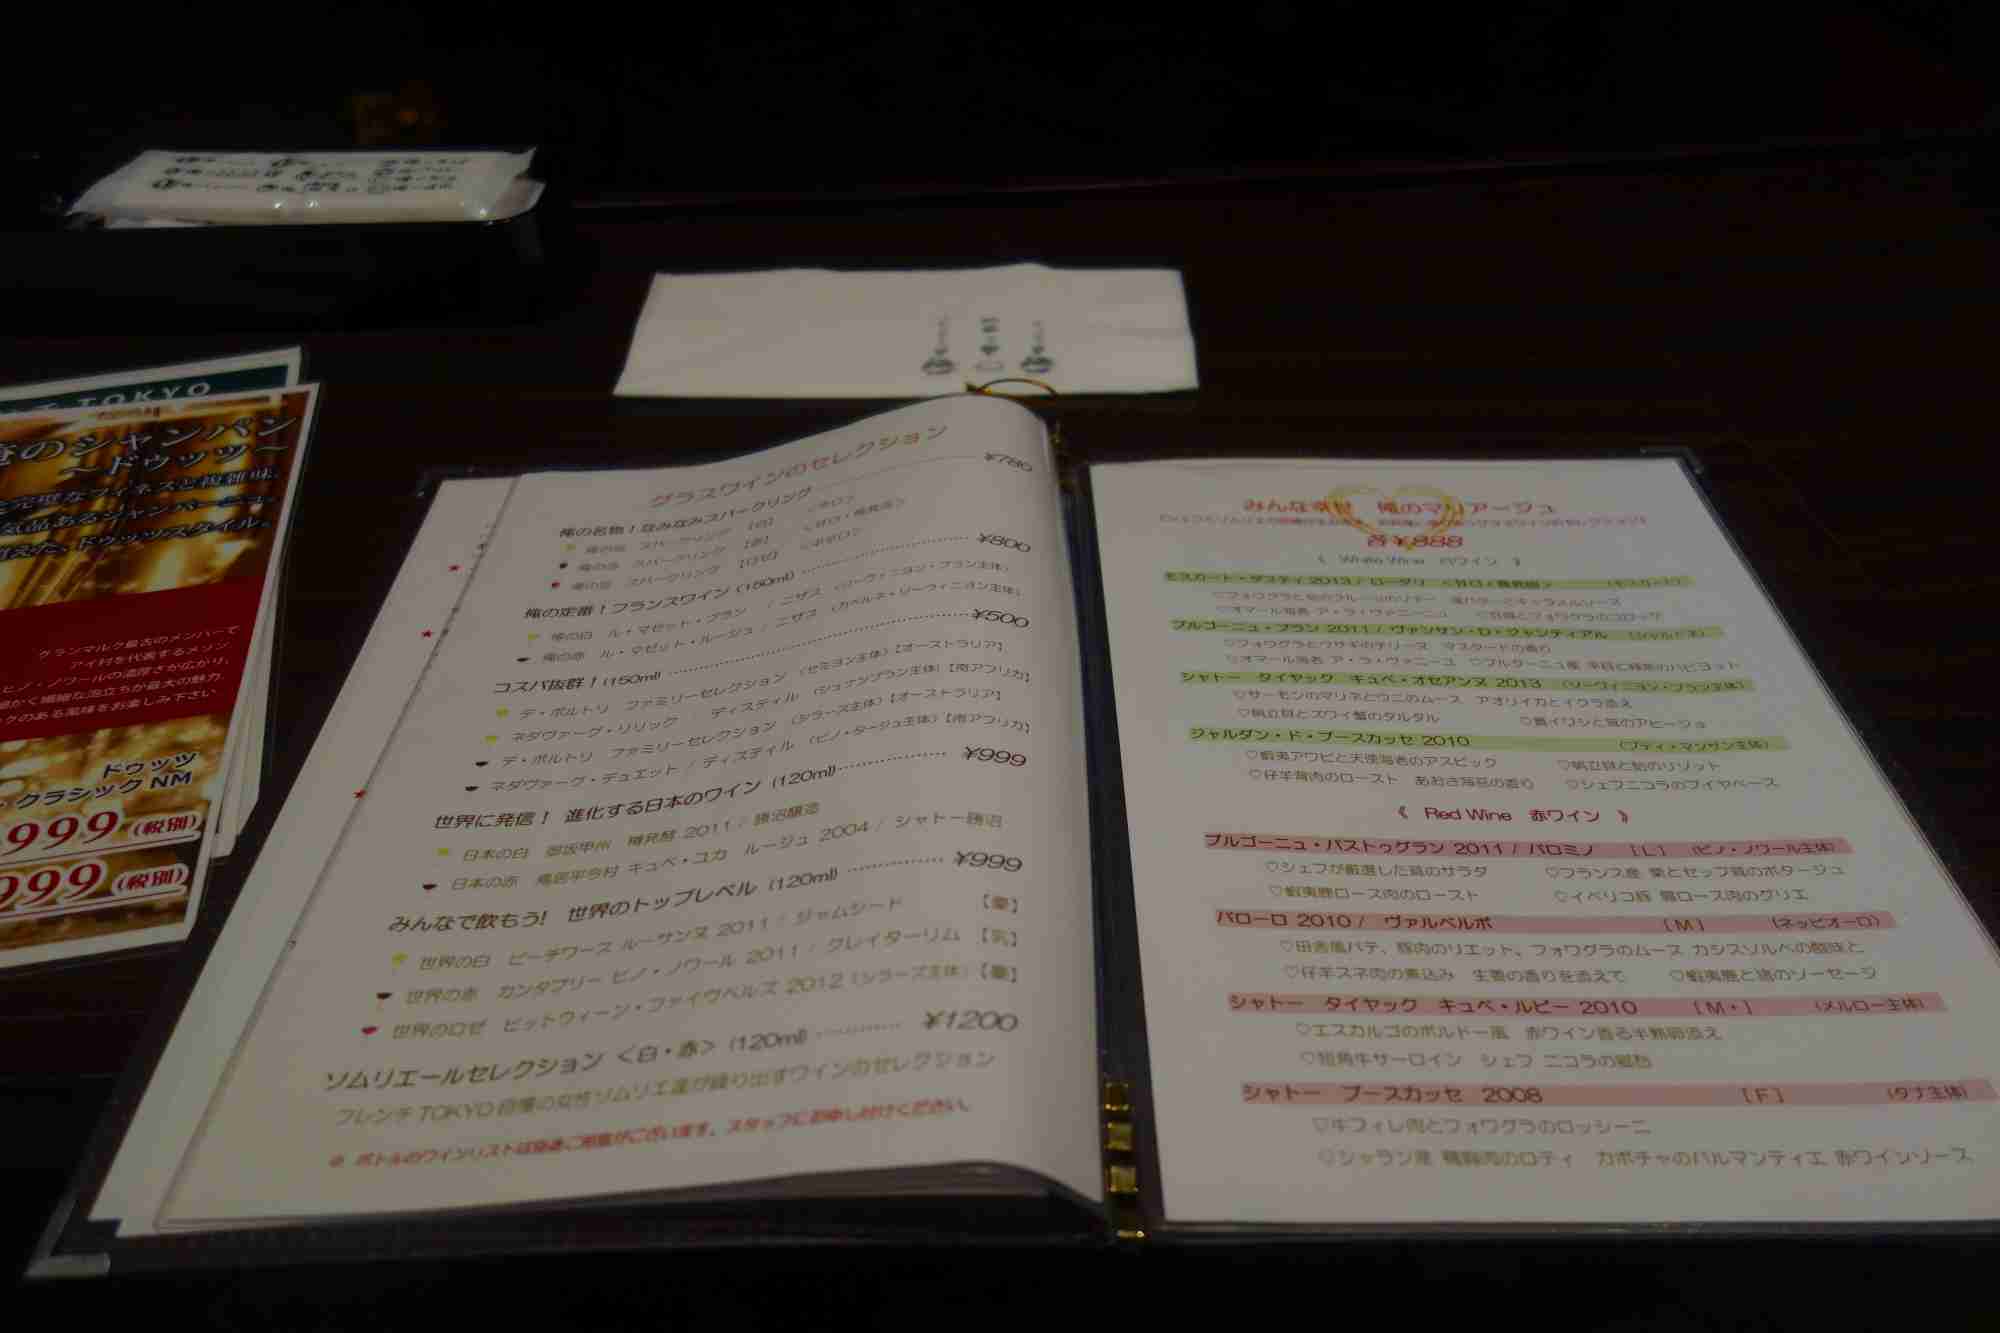 TOKYO
俺のシャンパン
～ドゥッツ～
完璧なフィネスと複雑味、
気品あるシャンパーニュ。
ドゥッツスタイル。
グランマルク最古のメンバーで
アイ村を代表するメゾン
ピノ・ノワールの濃厚さが広がり、
細かく繊細な泡立ちが最大の魅力
コクのある風味をお楽しみ下さい
ドゥッツ
・クラシック NM
999 (税別)
999 (税別)
グラスワインのセレクション
俺の名物！なみなみスパークリング ¥780
俺の泡 スパークリング 【白】 <辛口>
俺の泡 スパークリング 【赤】 <甘口・微発泡>
俺の泡 スパークリング 【ロゼ】 <中辛口>
俺の定番！フランスワイン (150ml) ¥800
俺の白 ル・マゼット・ブラン / ニザス (ソーヴィニヨン・ブラン主体)
俺の赤 ル・マゼット・ルージュ / ニザス (カベルネ・ソーヴィニヨン主体)
コスパ抜群！(150ml) ¥500
デ・ボルトリ ファミリーセレクション (セミヨン主体)【オーストラリア】
ネダヴァーグ・リリック / ディスティル (シュナンブラン主体)【南アフリカ】
デ・ボルトリ ファミリーセレクション (シラーズ主体)【オーストラリア】
ネダヴァーグ・デュエット / ディスティル (ピノ・タージュ主体)【南アフリカ】
世界に発信！ 進化する日本のワイン (120ml) ¥999
日本の白 御坂甲州 樽発酵 2011 / 勝沼醸造
日本の赤 鳥居平今村 キュベ・ユカ ルージュ 2004 / シャトー勝沼
みんなで飲もう! 世界のトップレベル (120ml) ¥999
世界の白 ビーチワース ルーサンヌ 2011 / ジャムシード 【豪】
世界の赤 カンタブリー ピノ・ノワール 2011 / クレイターリム 【乳】
世界のロゼ ビットウィーン・ファイヴベルズ 2012 (シラーズ主体)【豪】
ソムリエールセレクション <白・赤> (120ml) ¥1200
フレンチ TOKYO 自慢の女性ソムリエ達が繰り出すワインのセレクション
※ ボトルのワインリストは別途ご用意がございます。スタッフにお申し付けください。
みんな幸せ 俺のマリアージュ
各￥888
《 White Wine 白ワイン 》
モスカート・ダスティ 2013 / ロータリ <甘口・微発泡> (モスカート)
♡フォワグラと旬のフルーツのソテー
♡オマール海老 ア・ラ・ヴァニーユ
ブルゴーニュ・ブラン 2011 / ヴァンサン・D・クァンティアル (シャルドネ)
♡フォワグラとウサギのテリーヌ マスタードの香り
♡オマール海老 ア・ラ・ヴァニーユ ♡ブルターニュ産
シャトー タイヤック キュベ・オセアンヌ 2013 (ソーヴィニヨン・ブラン主体)
♡サーモンのマリネとウニのムース アオリイカとイクラ添え
♡帆立貝とズワイ蟹のタルタル ♡真イワシと茸のアヒージョ
ジャルダン・ド・ブースカッセ 2010 (プティ・マンサン主体)
♡蝦夷アワビと天使海老のアスピック ♡帆立貝と鮑のリゾット
♡仔羊背肉のロースト あおさ海苔の香り ♡シェフニコラのブイヤベース
《 Red Wine 赤ワイン 》
ブルゴーニュ・パストゥグラン 2011 / パロミノ [L] (ピノ・ノワール主体)
♡シェフが厳選した茸のサラダ ♡フランス産 栗とセップ茸のポタージュ
♡蝦夷鹿ロース肉のロースト ♡イベリコ豚 肩ロース肉のグリエ
バローロ 2010 / ヴァルベルボ [M] (ネッビオーロ)
♡田舎風パテ、豚肉のリエット、フォワグラのムース カシスソルベの酸味と
♡仔羊スネ肉の煮込み 生姜の香りを添えて ♡蝦夷鹿と猪のソーセージ
シャトー タイヤック キュベ・ルビー 2010 [M・] (メルロー主体)
♡エスカルゴのボルドー風 赤ワイン香る半熟卵添え
♡短角牛サーロイン シェフ ニコラの郷愁
シャトー ブースカッセ 2008 [F] (タナ主体)
♡牛フィレ肉とフォワグラのロッシーニ
♡シャラン産 鴨胸肉のロティ カボチャのパルマンティエ 赤ワインソース